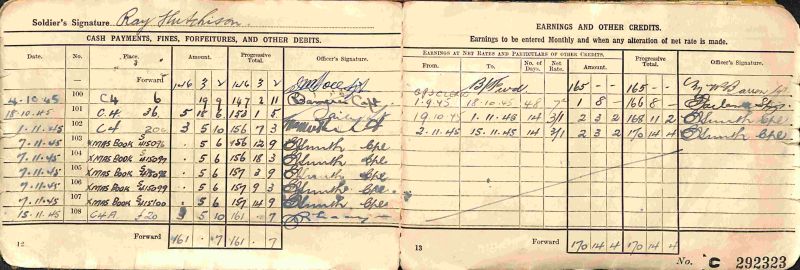 Soldier's Signature Ray Hutchison.
CASH PAYMENTS, FINES, FORFEITURES, AND OTHER DEBITS.
Date. No. Place. Amount. Progressive Total. Officer's Signature.
Forward 146 3 2 146 3 2
4.10.45 100 C4 6 19 9 147 2 11
18.10.45 101 C.4. 36 5 18 6 153 1 5
1.11.45 102 C4 206 3 5 10 156 7 3
7.11.45 103 XMAS BOOK 5 6 156 12 9 Cpl
7.11.45 104 XMAS BOOK 5 6 156 18 3 Cpl
7.11.45 105 XMAS BOOK 5 6 157 3 9 Cpl
7.11.45 106 XMAS BOOK 5 6 157 9 3 Cpl
7.11.45 107 XMAS BOOK 5 6 157 14 9 Cpl
15.11.45 108 C4A £20 3 5 10 161 . 7
Forward 161 . 7 161 . 7
12
EARNINGS AND OTHER CREDITS.
Earnings to be entered Monthly and when any alteration of net rate is made.
EARNINGS AT NET RATES AND PARTICULARS OF OTHER CREDITS.
From. To. No. of Days. Net Rate. Amount. Progressive Total. Officer's Signature.
B/Fwd 165 - - 165 - -
1.9.45 18.10.45 48 7d 1 8 - 166 8 -
19.10.45 1.11.45 14 3/1 2 3 2 168 11 2 Cpl
2.11.45 15.11.45 14 3/1 2 3 2 170 14 4 Cpl
Forward 170 14 4 170 14 4
13
No. C 292323